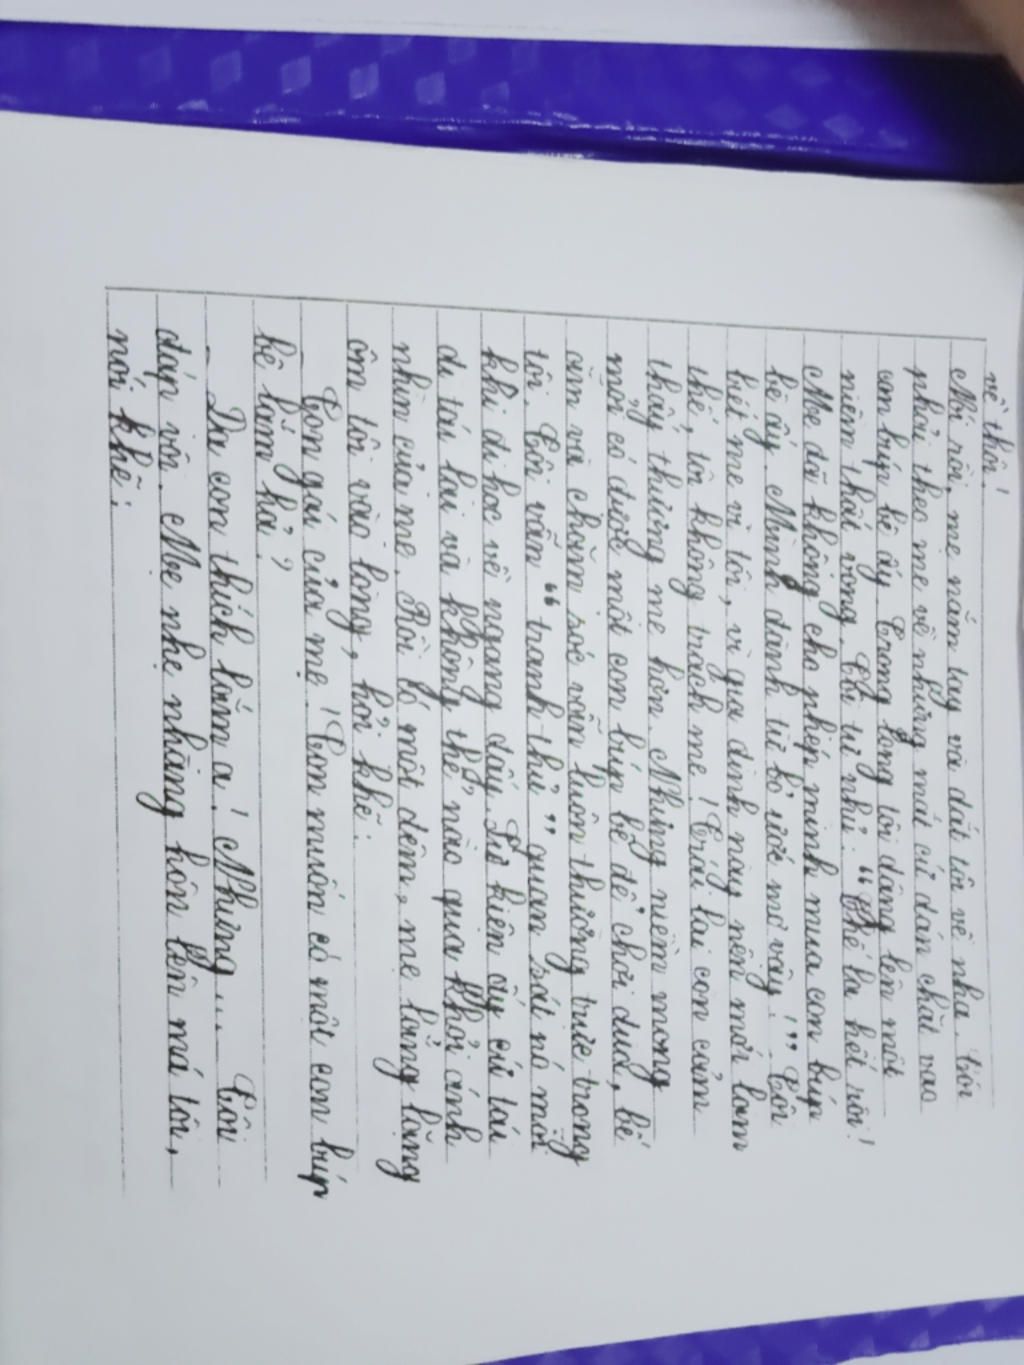 về thôi!
Nói rồi, mẹ nắm tay và dắt tôi về nhà. Tôi
phải theo mẹ về nhưng mắt cứ dán chặt vào
con búp bê ấy. Trong lòng tôi dâng lên một
niềm thất vọng. Tôi tự nhủ: "Thế là hết rồi!
Mẹ đã không cho phép mình mua con búp
bê ấy. Mình đành từ bỏ ước mơ vậy!" Tôi
biết mẹ vì tôi, vì gia đình này nên mới làm
thế, tôi không trách mẹ! Trái lại còn cảm
thấy thương mẹ hơn. Nhưng niềm mong
mỏi có được một con búp bê để chơi đùa, bế
ẵm và chăm sóc vẫn luôn thường trực trong
tôi. Tôi vẫn "tranh thủ" quan sát nó mỗi
khi đi học về ngang đây. Sự kiện ấy cứ tái
đi tái lại và không thể nào qua khỏi ánh
nhìn của mẹ. Rồi có một đêm, mẹ lẳng lặng
ôm tôi vào lòng, hỏi khẽ:
Con gái của mẹ! Con muốn có một con búp
bê lắm hả?
Dạ con thích lắm ạ! Nhưng... Tôi
đáp vội. Mẹ nhẹ nhàng hôn lên má tôi,
nói khẽ: